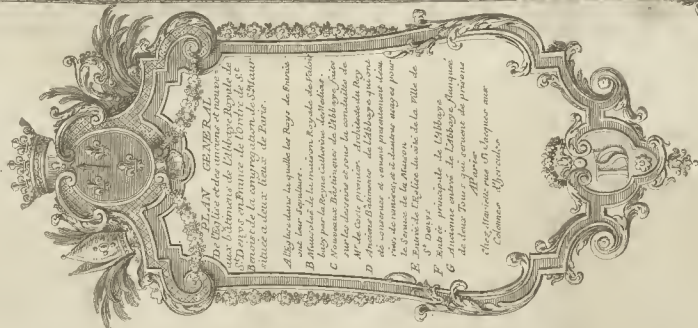 PLAN GENERAL
De l'Eglise et des anciens et nouve-
aux bâtimens de l'Abbaye Royale de
St Denys en France de l'Ordre de St
Benoist de la congrégation de St Maur
située a deux lieux de Paris.
A l'Eglise dans la quelle les Roys de France
ont leur Sepulture.
B Mausolée de la maison Royale de Valois
basty par la Reyne Catherine de Medicis.
C Nouveaux Bâtimens de l'Abbaye faits
sur les desseins et sous la conduitte de
Mr de Cotte premier Architecte du Roy
D Anciens Batimens de l'Abbaye qui ont
été conservés et servent presentement
et à d'autres usages pour
le Service de la Maison
E Entrée de l'Eglise du côté de la Ville de
St Denys
F Entrée principale de l'Abbaye
G Ancienne entrée de l'Abbaye flanquée
de deux Tours qui servent de prisons
A Paris
Chez Mariette rue St Jacques aux
Colonnes d'Hercules